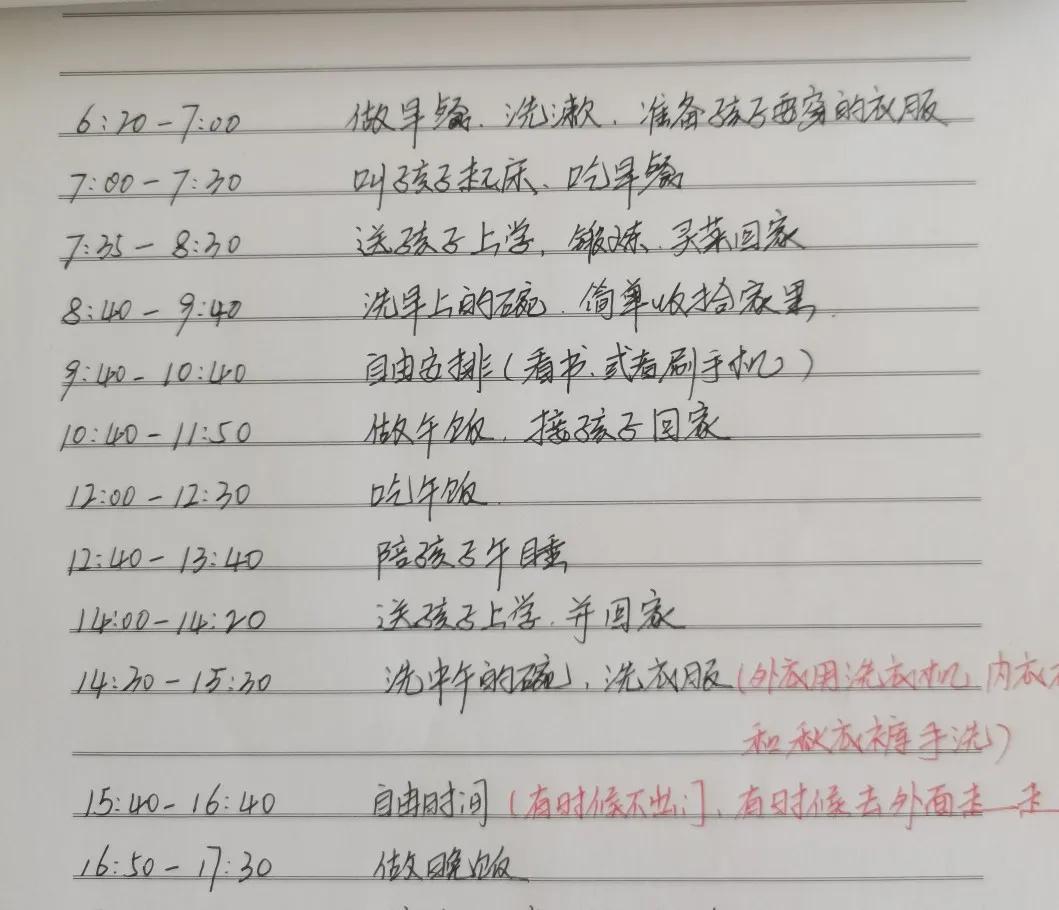 6:20-7:00 做早餐、洗漱、准备孩子要穿的衣服
7:00-7:30 叫孩子起床、吃早餐
7:35-8:30 送孩子上学,锻炼、买菜回家
8:40-9:40 洗早上的碗、简单收拾家里.
9:40-10:40 自由安排(看书、或者刷手机)
10:40-11:50 做午饭,接孩子回家
12:00-12:30 吃午饭.
12:40-13:40 陪孩子午睡
14:00-14:20 送孩子上学,并回家
14:30-15:30 洗中午的碗、洗衣服(外衣用洗衣机,内衣
和秋衣裤手洗)
15:40-16:40 自由时间(有时候不出门,有时候去外面走一走
16:50-17:30 做晚饭